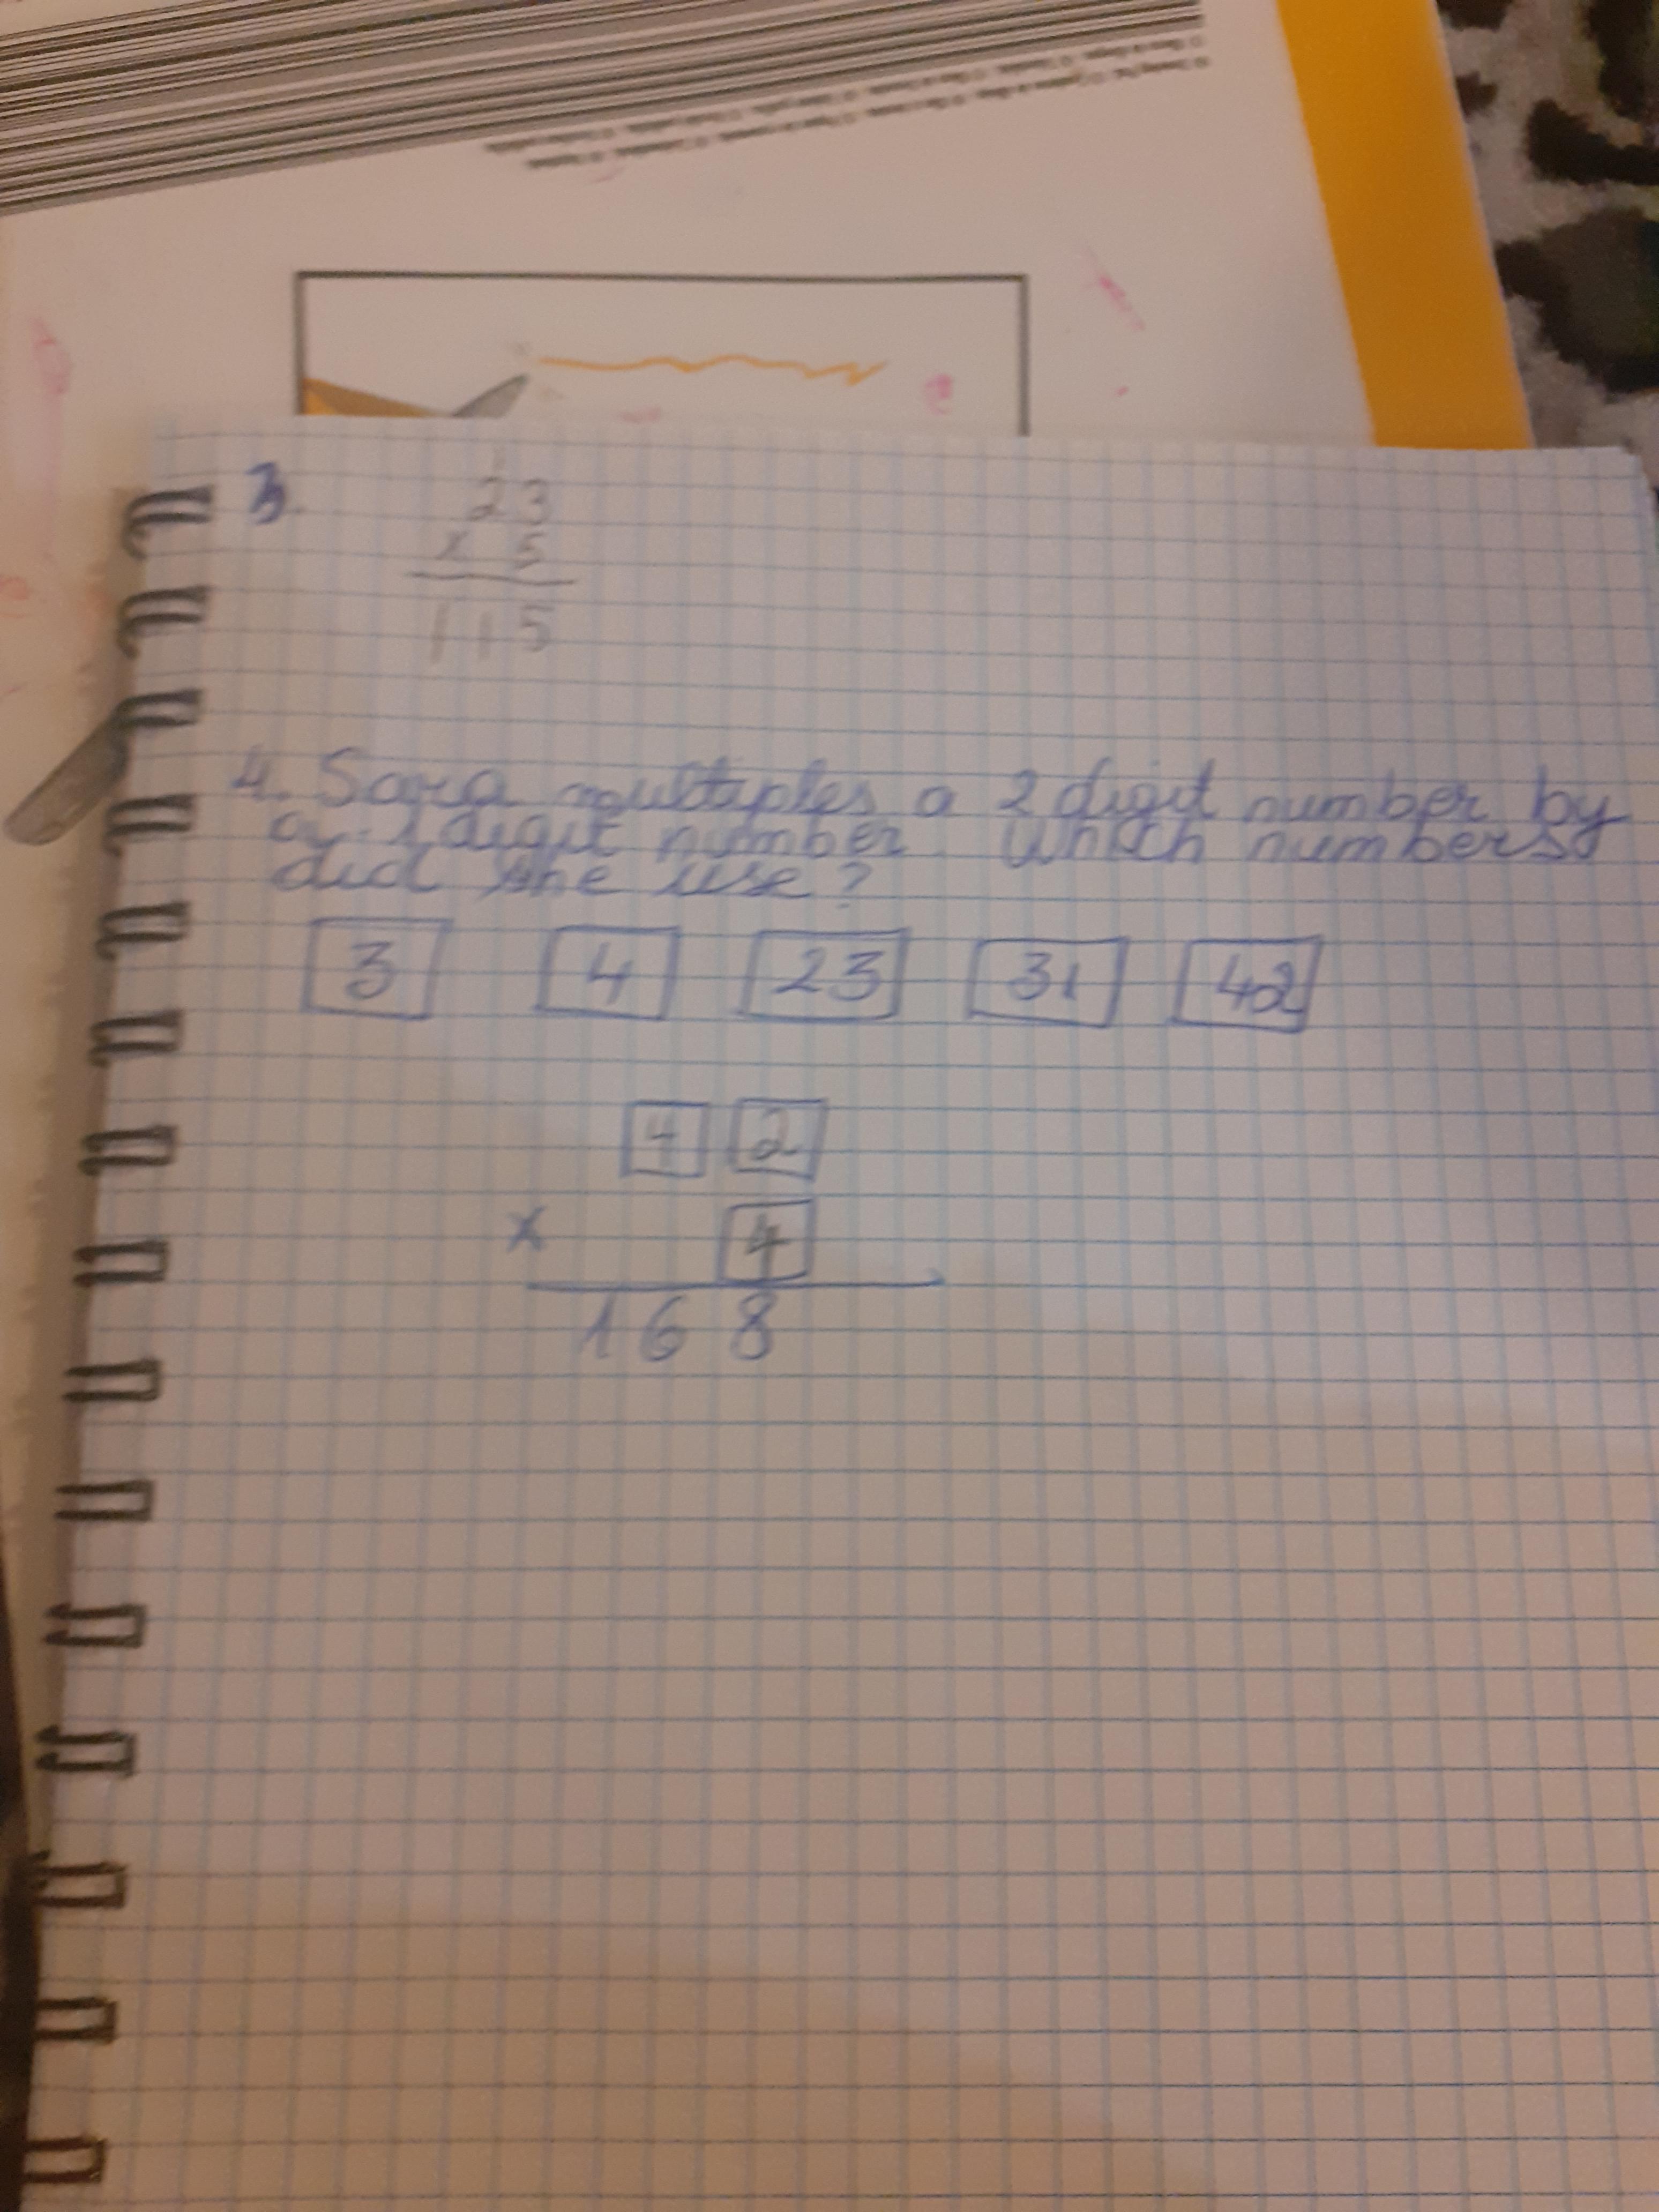 3.
1
23
x 5
115
4. Sara multiples a 2 digit number by
a 1 digit number. Which numbers
did she use?
3 4 23 31 42
4 2
x 4
168